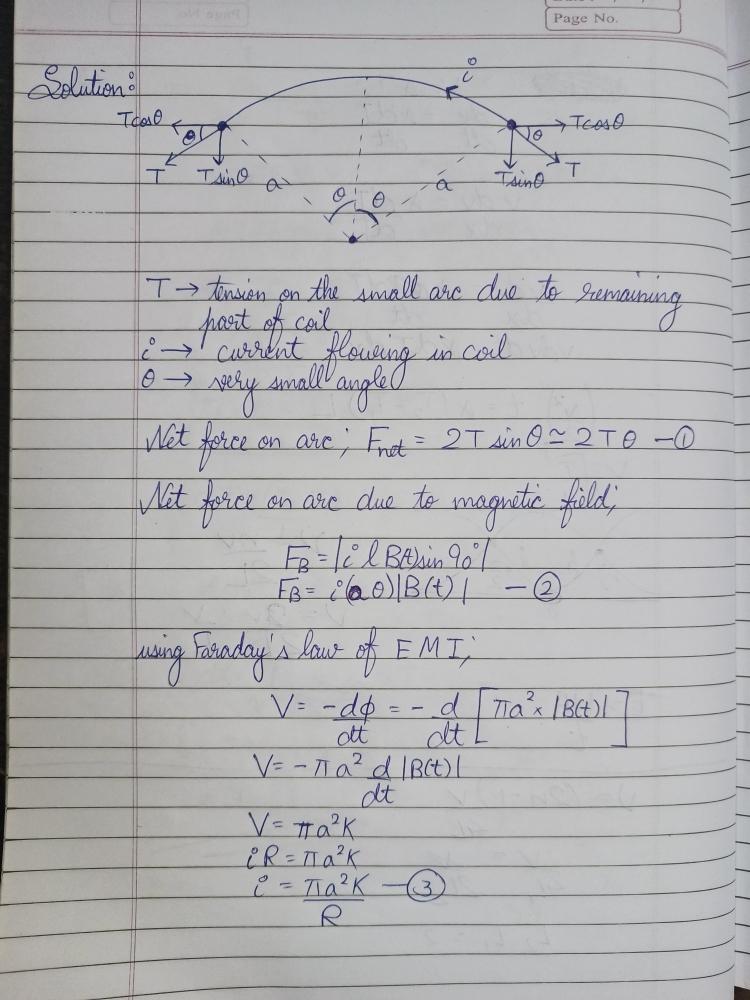 Page No.
Solution:
i
Tcosθ
θ
T
Tsinθ
a
θ
θ
a
Tsinθ
T
θ
Tcosθ
T → tension on the small arc due to remaining
part of coil
i → current flowing in coil
θ → very small angle
Net force on arc; Fnet = 2T sinθ ≃ 2Tθ —①
Net force on arc due to magnetic field;
FB = |i l B(t) sin 90°|
FB = i(aθ)|B(t)| —②
using Faraday's law of EMI;
V = -dφ/dt = -d/dt [πa² × |B(t)|]
V = -πa² d/dt |B(t)|
V = πa²K
iR = πa²K
i = πa²K/R —③